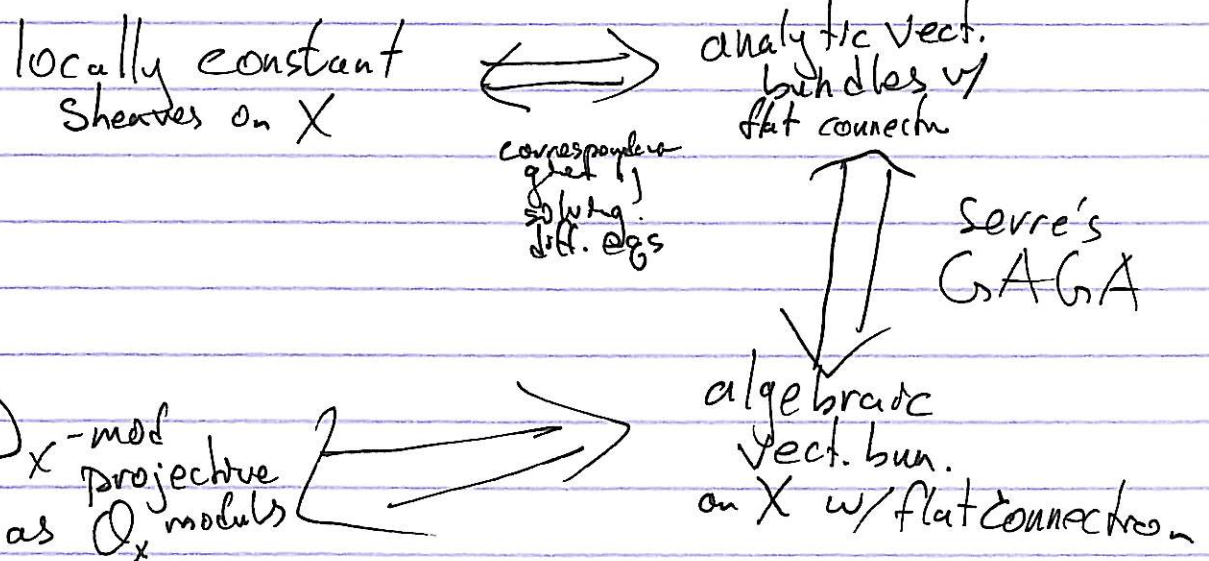 locally constant
sheaves on X
analytic vect.
bundles w/
flat connectn
solving
diff. eqs
Serre's
GAGA
D_X-mod
projective
as O_X moduls
algebraic
vect. bun.
on X w/ flat connection